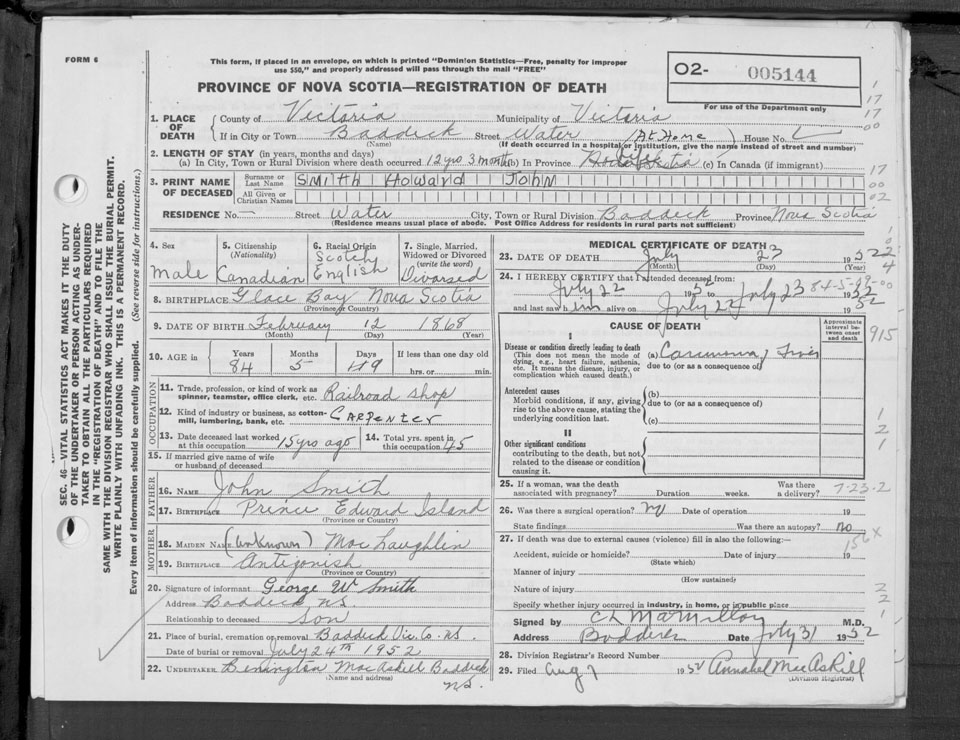 FORM 6
This form, if placed in an envelope, on which is printed "Dominion Statistics—Free, penalty for improper
use $50," and properly addressed will pass through the mail "FREE"
O2- 005144
PROVINCE OF NOVA SCOTIA—REGISTRATION OF DEATH
For use of the Department only
1. PLACE OF DEATH
County of Victoria Municipality of Victoria
If in City or Town Baddeck Street Water (At Home) House No.
(Name) (If death occurred in a hospital or institution, give the name instead of street and number)
2. LENGTH OF STAY (in years, months and days)
(a) In City, Town or Rural Division where death occurred 12 yrs 3 month (b) In Province Nova Scotia (c) In Canada (if immigrant)
3. PRINT NAME OF DECEASED
Surname or Last Name Smith Howard John
All Given or Christian Names
RESIDENCE No. — Street Water City, Town or Rural Division Baddeck Province Nova Scotia
(Residence means usual place of abode. Post Office Address for residents in rural parts not sufficient)
4. Sex
Male
5. Citizenship
(Nationality)
Canadian
6. Racial Origin
Scotch
English
7. Single, Married,
Widowed or Divorced
(write the word)
Divorsed
8. BIRTHPLACE Glace Bay Nova Scotia
(Province or Country)
9. DATE OF BIRTH February 12 1868
(Month) (Day) (Year)
10. AGE in Years Months Days If less than one day old
84 5 hrs. or min.
OCCUPATION
11. Trade, profession, or kind of work as
spinner, teamster, office clerk, etc. Railroad shop
12. Kind of industry or business, as cotton-
mill, lumbering, bank, etc. Carpenter
13. Date deceased last worked
at this occupation 15 yrs ago
14. Total yrs. spent in
this occupation 45
15. If married give name of wife
or husband of deceased
FATHER
16. NAME John Smith
17. BIRTHPLACE Prince Edward Island
(Province or Country)
MOTHER
18. MAIDEN NAME (unknown) MacLaughlin
19. BIRTHPLACE Antigonish
(Province or Country)
20. Signature of informant George W Smith
Address Baddeck N.S.
Relationship to deceased son
21. Place of burial, cremation or removal Baddeck Vic. Co. N.S.
Date of burial or removal July 24th 1952
22. UNDERTAKER Bennington MacAskill Baddeck
(Name and address) N.S.
MEDICAL CERTIFICATE OF DEATH
23. DATE OF DEATH July 23 1952
(Month) (Day) (Year)
24. I HEREBY CERTIFY that I attended deceased from:
July 22 1952 to July 23 1952
and last saw him alive on July 23 1952
CAUSE OF DEATH
Approximate interval between onset and death
I
Disease or condition directly leading to death
(This does not mean the mode of
dying, e.g., heart failure, asthenia,
etc. It means the disease, injury, or
complication which caused death.)
(a)
due to (or as a consequence of)
Antecedent causes
Morbid conditions, if any, giving
rise to the above cause, stating the
underlying condition last.
(b)
due to (or as a consequence of)
(c)
II
Other significant conditions
contributing to the death, but not
related to the disease or condition
causing it.
25. If a woman, was the death
associated with pregnancy? Duration weeks. Was there
a delivery? 7-23-2
26. Was there a surgical operation? No Date of operation 19
State findings Was there an autopsy? no
27. If death was due to external causes (violence) fill in also the following:—
Accident, suicide or homicide? Date of injury 19
(State which)
Manner of injury
(How sustained)
Nature of injury
Specify whether injury occurred in industry, in home, or in public place
Signed by M.D.
Address Date July 31 1952
28. Division Registrar's Record Number
29. Filed Aug 7 1952 Annabel MacAskill
(Division Registrar)
SEC. 46—VITAL STATISTICS ACT MAKES IT THE DUTY
OF THE UNDERTAKER OR PERSON ACTING AS UNDER-
TAKER TO OBTAIN ALL THE PARTICULARS REQUIRED
IN THE "REGISTRATION OF DEATH" AND TO FILE THE
SAME WITH THE DIVISION REGISTRAR WHO SHALL ISSUE THE BURIAL PERMIT.
WRITE PLAINLY WITH UNFADING INK. THIS IS A PERMANENT RECORD.
Every item of information should be carefully supplied. (See reverse side for instructions.)